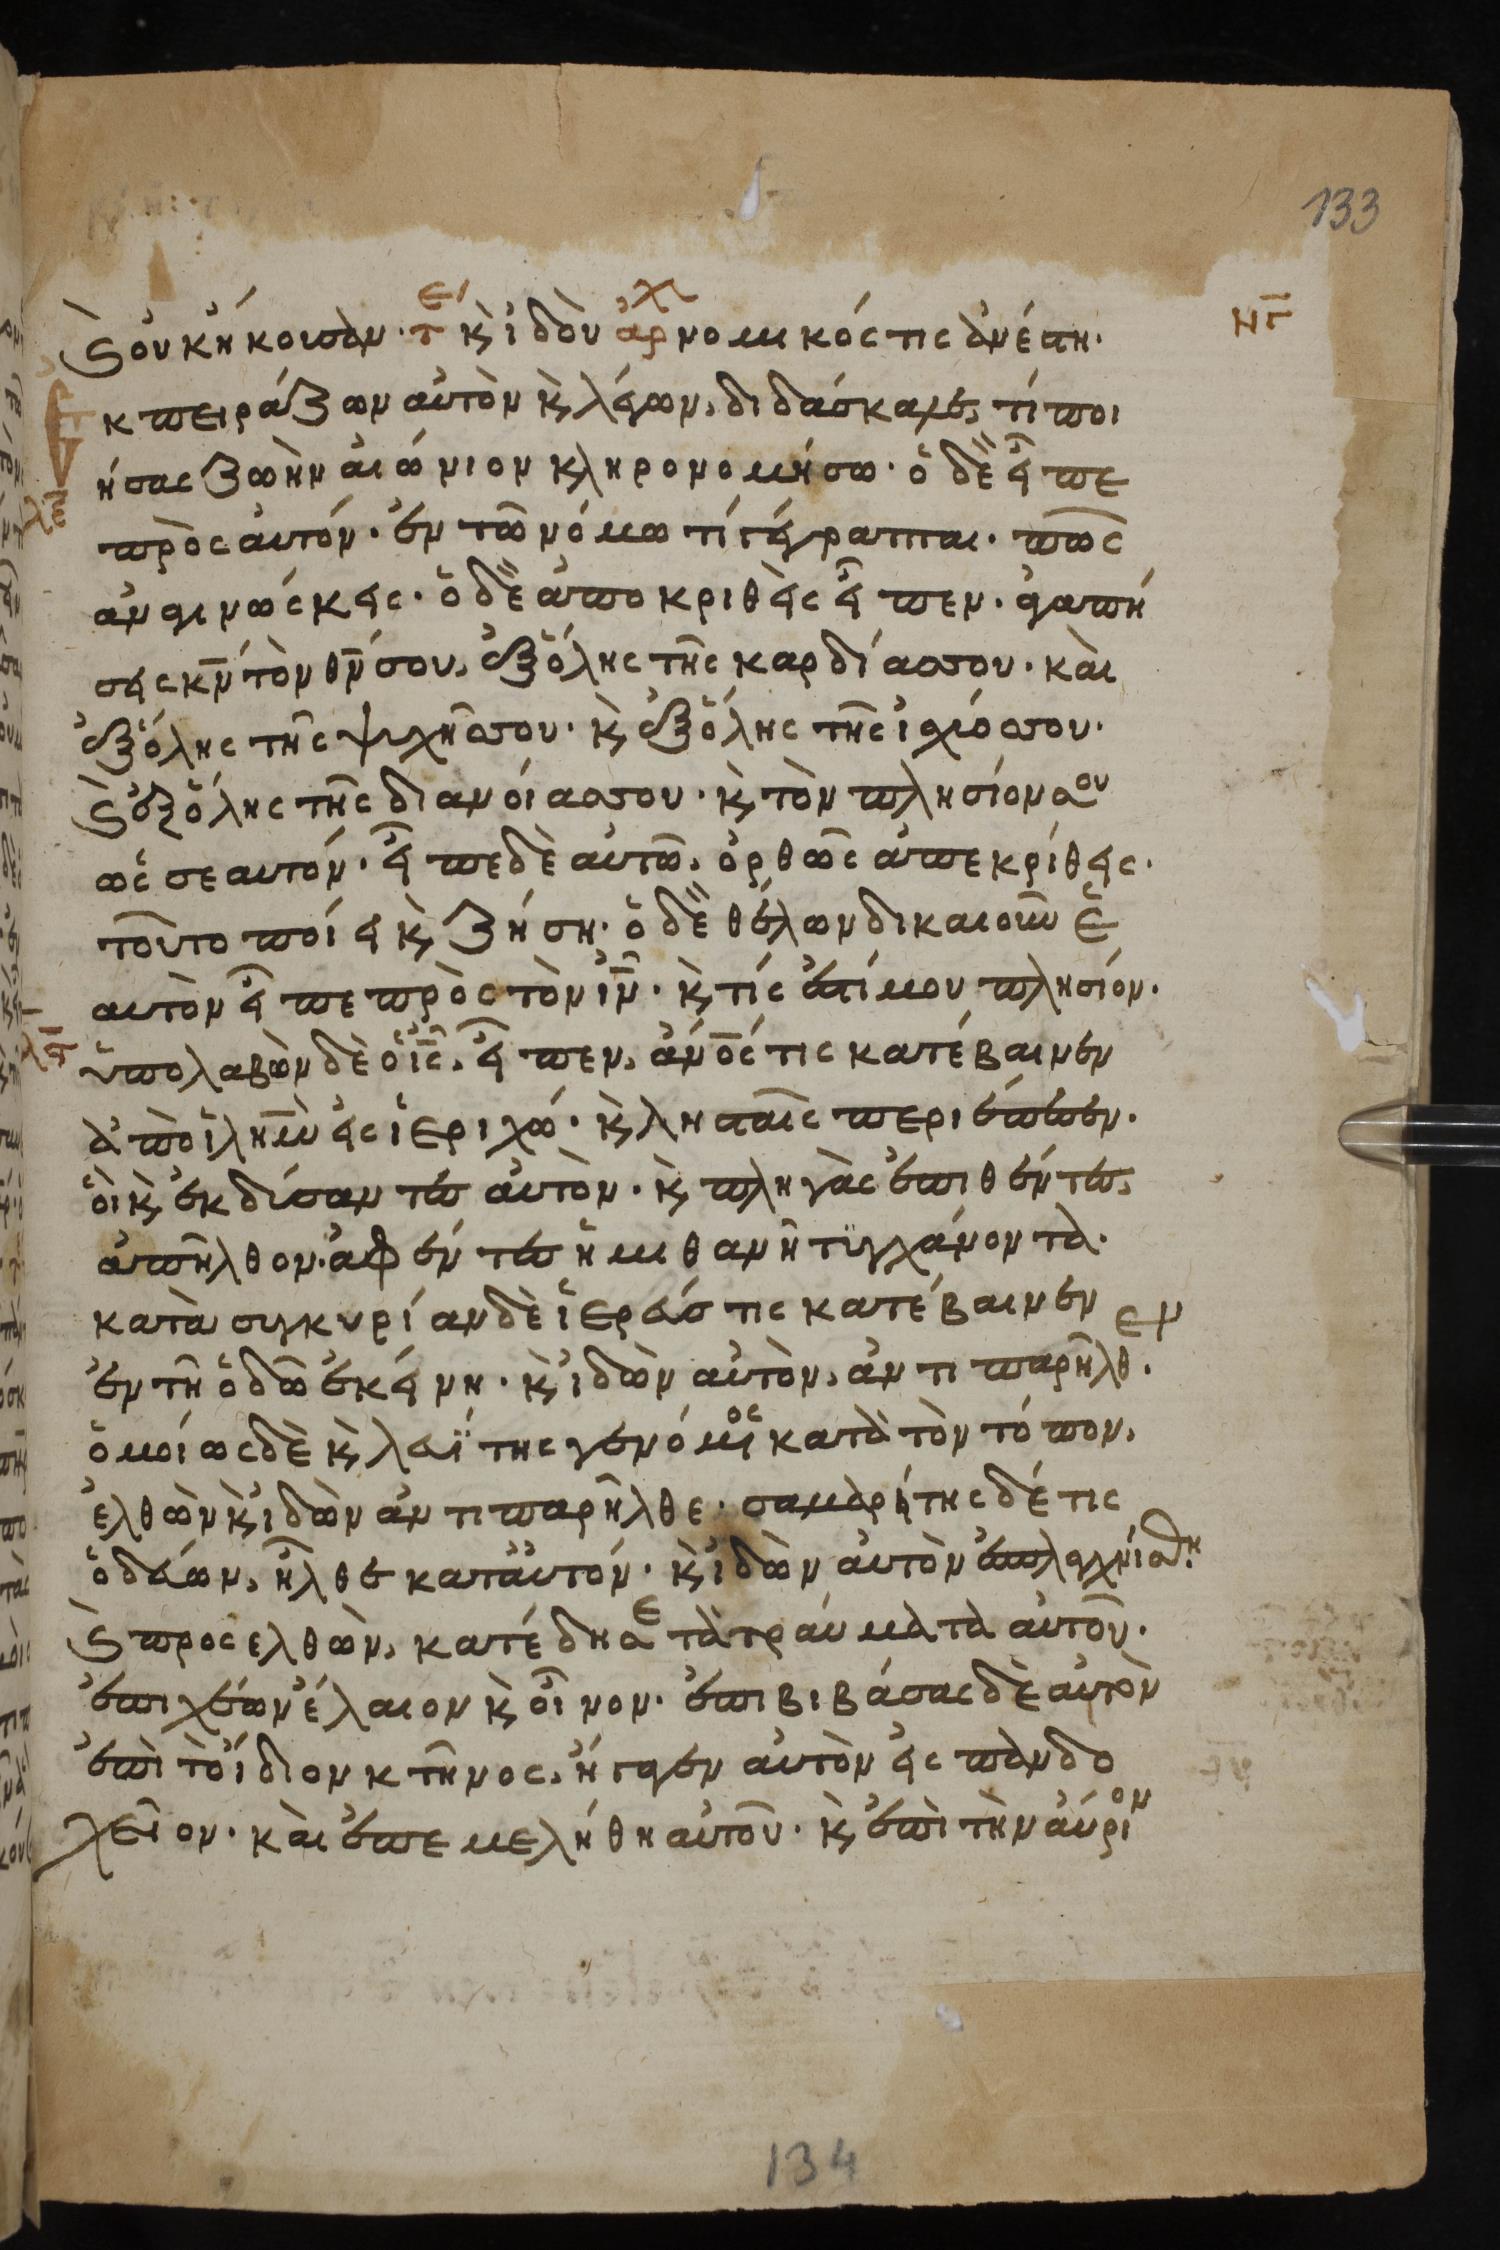 133
ϗ οὐκ ἤκουσαν· τε ϗ ἰδοὺ ἀρχ νομικός τις ἀνέστη· νγ
ἐκπειράζων αὐτὸν ϗ λέγων, διδάσκαλε, τί ποι
ήσας ζωὴν αἰώνιον κληρονομήσω· ὁ δὲ εἶπε
πρὸς αὐτόν· ἐν τῶ νόμω τί γέγραπται· πῶς
ἀναγινώσκεις· ὁ δὲ ἀποκριθεὶς εἶπεν· ἀγαπή
σεις κν τὸν θν σου, ἐξ ὅλης τῆς καρδίας σου· καὶ
ἐξ ὅλης τῆς ψυχῆς σου· ϗ ἐξ ὅλης τῆς ἰσχύος σου·
ϗ ἐξ ὅλης τῆς διανοίας σου· ϗ τὸν πλησίον σου
ὡς σεαυτόν· εἶπε δὲ αὐτῶ, ὀρθῶς ἀπεκρίθεις·
τοῦτο ποίει ϗ ζήση· ὁ δὲ θέλων δικαιοῦν ἑ
αυτὸν εἶπε πρὸς τὸν ιν· ϗ τίς ἐστί μου πλησίον·
ὑπολαβὼν δὲ ὁ ις, εἶπεν, ἀνος τις κατέβαινεν
ἀπὸ ἰλημ εἰς ἱεριχώ· ϗ λησταῖς περιέπεσεν·
οἳ ϗ ἐκδύσαντες αὐτὸν· ϗ πληγὰς ἐπιθέντες,
ἀπῆλθον· ἀφέντες ἡμιθανῆ τυγχάνοντα·
κατὰ συγκυρίαν δὲ ἱερεύς τις κατέβαινεν εν
ἐν τῆ ὁδῶ ἐκείνη· ϗ ἰδὼν αὐτὸν, ἀντιπαρῆλθ·
ὁμοίως δὲ ϗ λευΐτης γενόμενος κατὰ τὸν τόπον,
ἐλθὼν ϗ ἰδὼν ἀντιπαρῆλθε· σαμαρείτης δέ τις
ὁδεύων, ἦλθε κατ' αὐτόν· ϗ ἰδὼν αὐτὸν ἐσπλαγχνίσθη·
ϗ προσελθὼν, κατέδησε τὰ τραύματα αὐτοῦ·
ἐπιχέων ἔλαιον ϗ οἶνον· ἐπιβιβάσας δὲ αὐτὸν
ἐπὶ τὸ ἴδιον κτῆνος, ἤγαγεν αὐτὸν εἰς πανδο
χεῖον· καὶ ἐπεμελήθη αὐτοῦ· ϗ ἐπὶ τὴν αὔριον
134